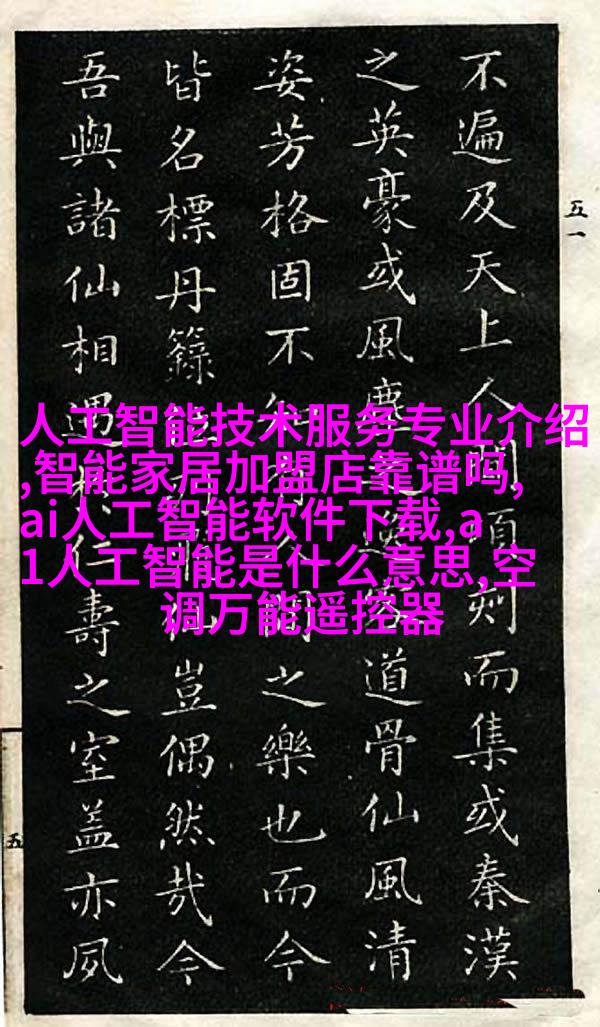 人工智能技术服务专业介绍
,智能家居加盟店靠谱吗,
ai人工智能软件下载,a
1人工智能是什么意思,空
调万能遥控器
五一
不遍及天上人間頃刻而集或秦漢
之英豪或風塵逸客道骨仙風清
姿芳格固不知人間之樂也而今
皆名標丹籙仙豈偶然哉今
吾與諸仙相遇於仁壽之室蓋亦夙
五